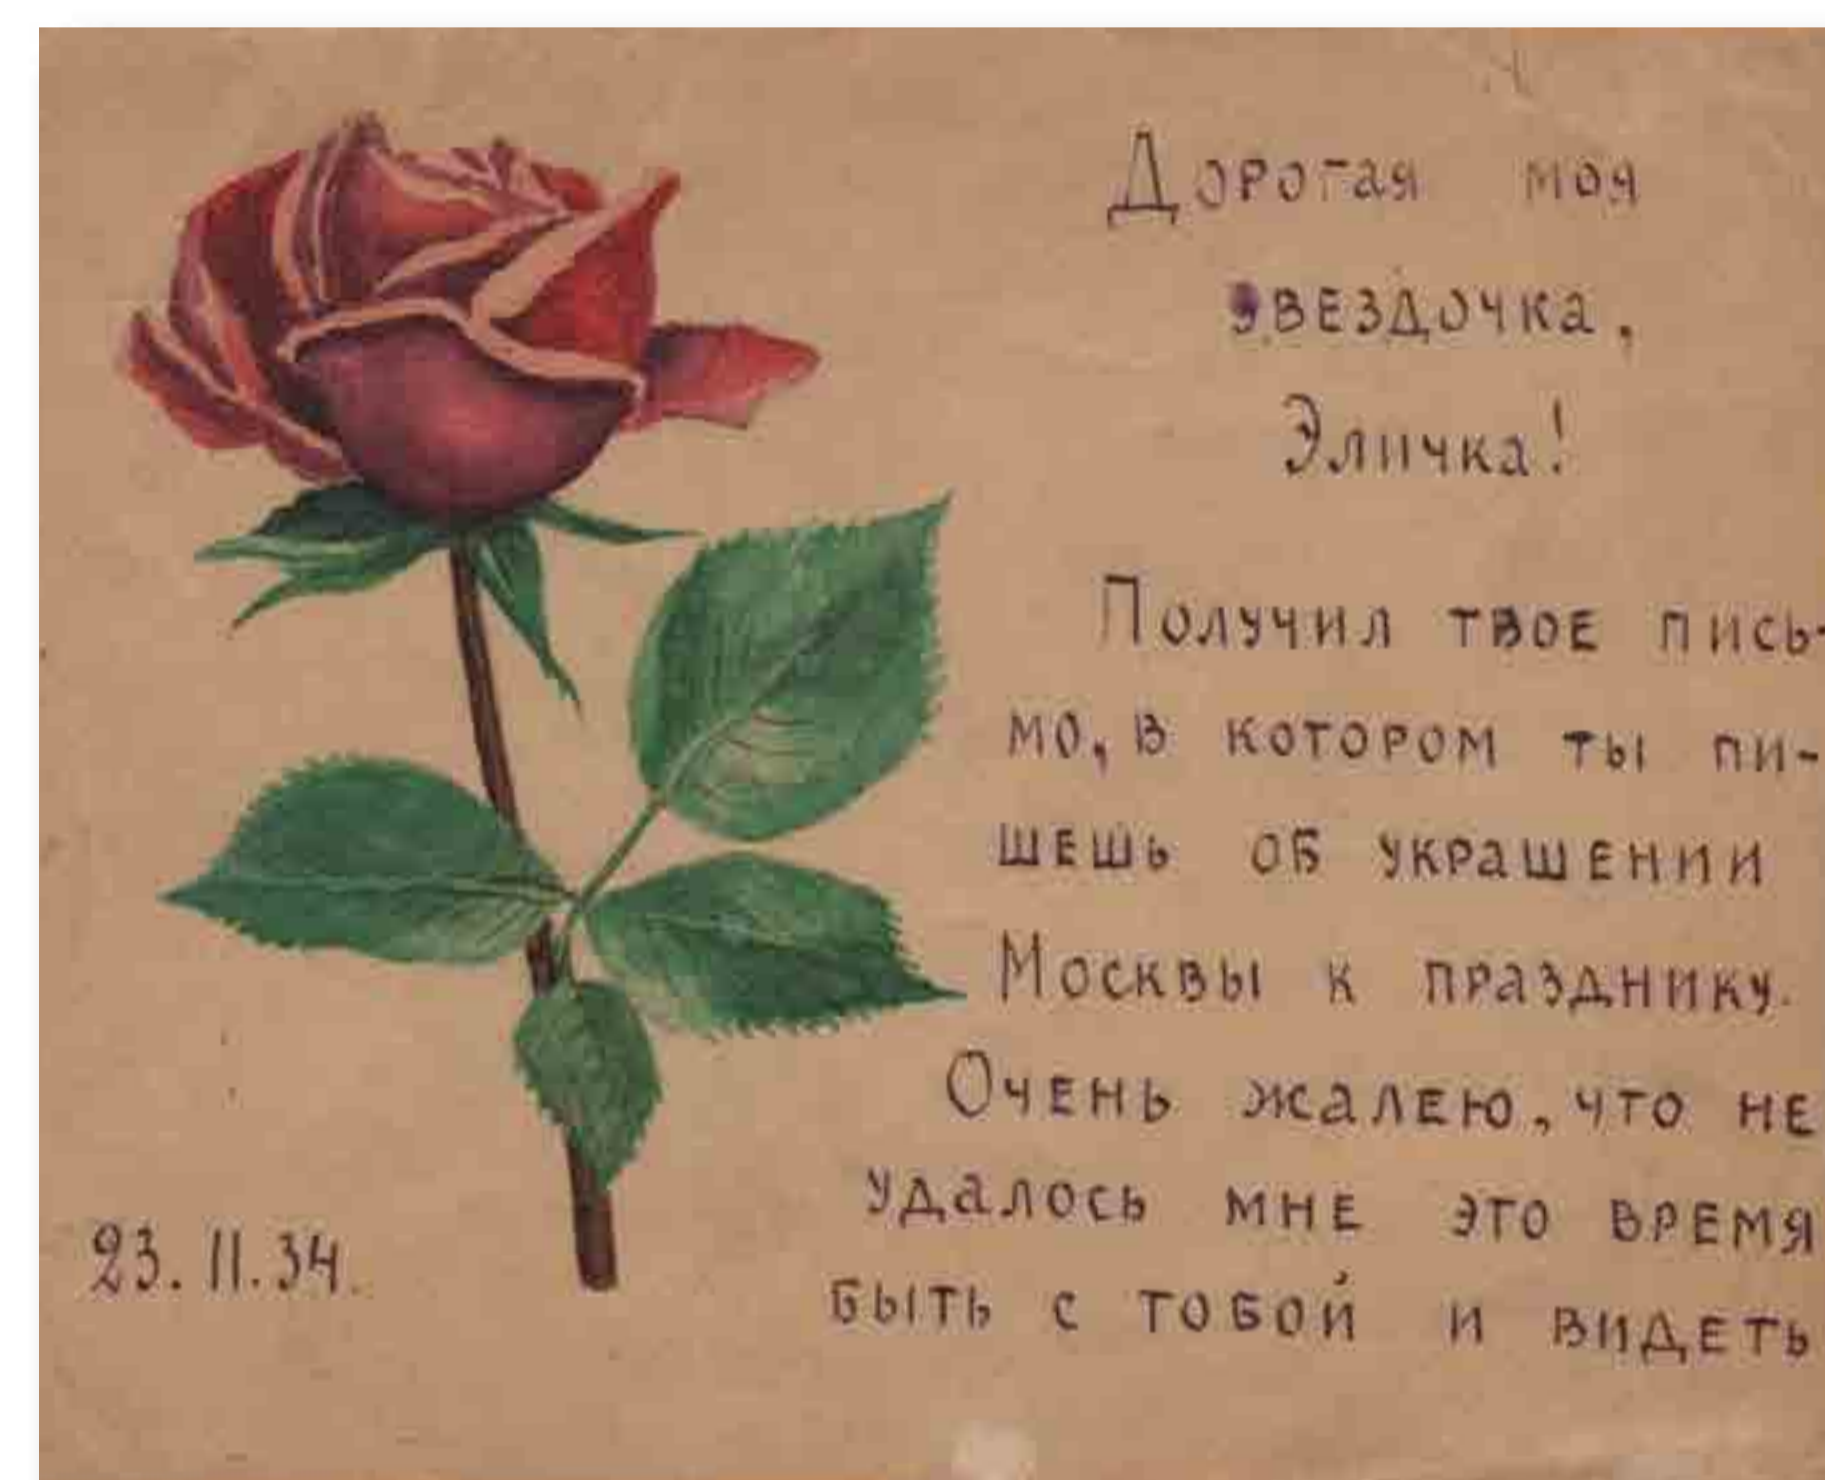 Дорогая моя
звездочка,
Эличка!
Получил твое пись-
мо, в котором ты пи-
шешь об украшении
Москвы к празднику.
Очень жалею, что не
удалось мне это время
быть с тобой и видеть
23.11.34.